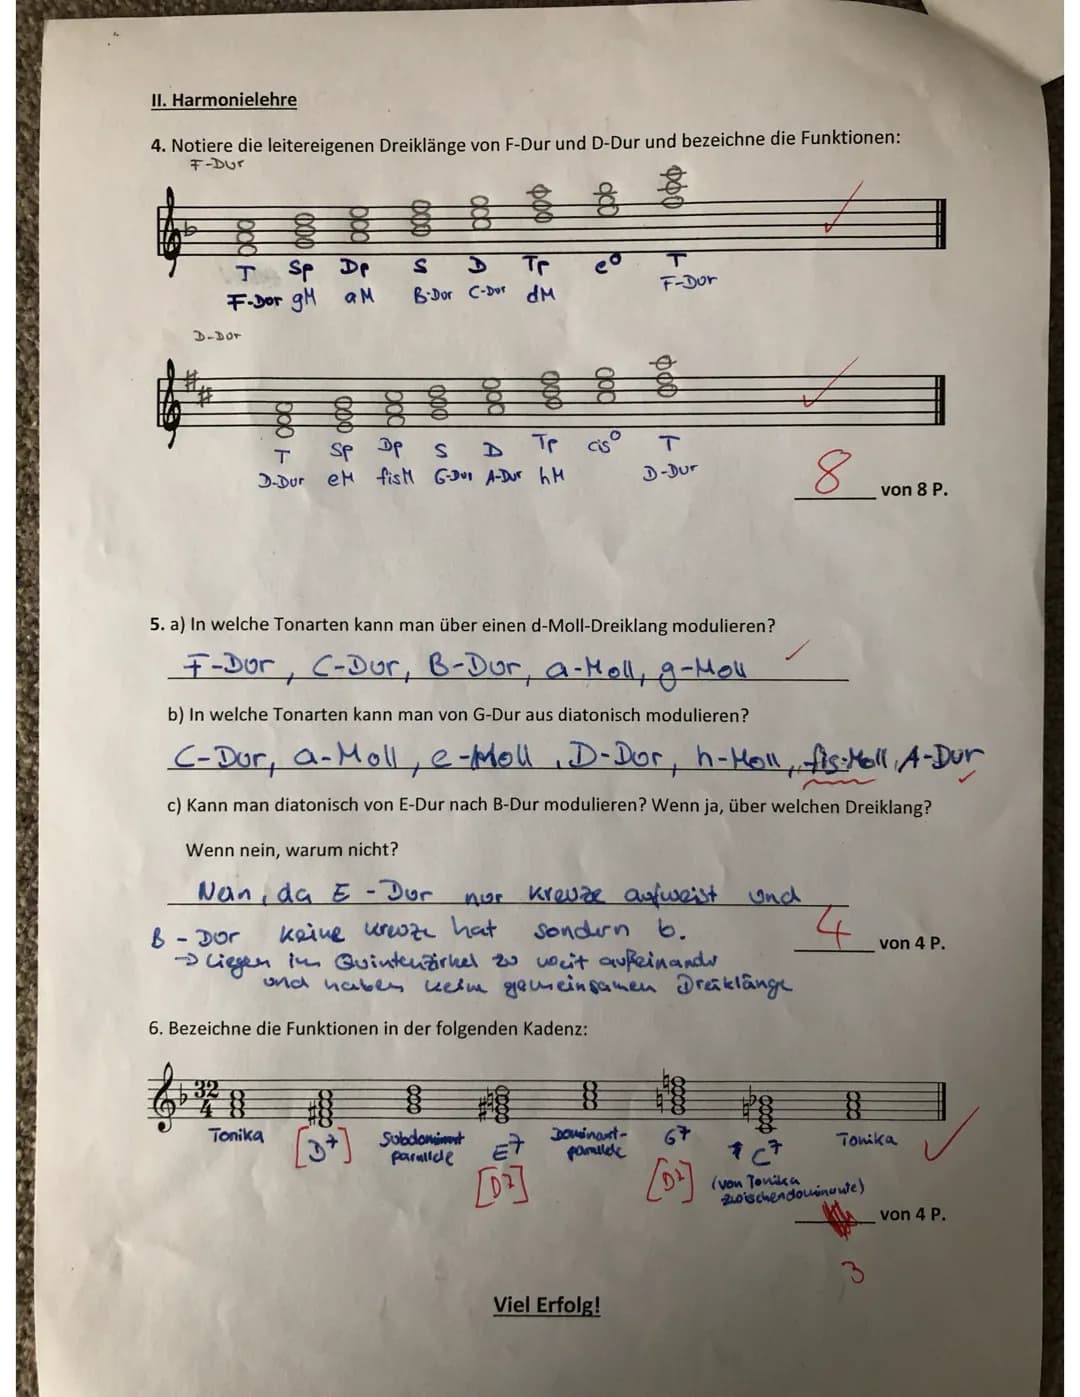 II. Harmonielehre
4. Notiere die leitereigenen Dreiklänge von F-Dur und D-Dur und bezeichne die Funktionen:
F-Dur
T Sp Dp S D Tp e° T
F-Dur gM aM B-Dur C-Dur dM F-Dur
D-Dur
T Sp Dp S D Tp cis° T
D-Dur eM fisM G-Dur A-Dur hM D-Dur
8 von 8 P.
5. a) In welche Tonarten kann man über einen d-Moll-Dreiklang modulieren?
F-Dur, C-Dur, B-Dur, a-Moll, g-Moll
b) In welche Tonarten kann man von G-Dur aus diatonisch modulieren?
C-Dur, a-Moll, e-Moll, D-Dur, h-Moll, fis-Moll, A-Dur
c) Kann man diatonisch von E-Dur nach B-Dur modulieren? Wenn ja, über welchen Dreiklang?
Wenn nein, warum nicht?
Nein, da E-Dur nur Kreuze aufweist und
B-Dur keine Kreuze hat sondern b.
→ Liegen im Quintenzirkel zu weit aufeinander
und haben keine gemeinsamen Dreiklänge
4 von 4 P.
6. Bezeichne die Funktionen in der folgenden Kadenz:
32
4
Tonika [D7] Subdominant parallele E7 Dominant-parallele G7 C7 Tonika
[D7] [D7] (von Tonika
zwischendominante)
von 4 P.
3
Viel Erfolg!